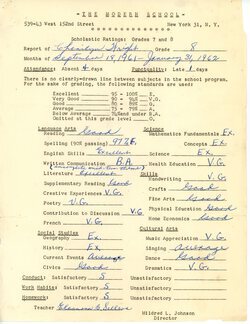 -THE MODERN SCHOOL-
539-43 West 152nd Street New York 31, N. Y.
Scholastic Ratings: Grades 7 and 8
Report of Wright Grade 8
Months of September 18, 1961 - January 31, 1962
Attendance: Absent days Punctuality: Late days
There is no clearly-drawn line between subjects in the school program.
For the sake of grading, the following standards are used:
Excellent 95 - 100% E.
Very Good 90 - 94% V.G.
Good 80 - 89% G.
Average 75 - 79% A.
Below Average 74% and under B.A.
Omitted at this grade level O.
Language Arts Science
Reading Good Mathematics Fundamentals Ex.
Spelling (90% passing) 97% E. Concepts Ex.
English Skills Excellent Science Ex.
Written Communication B.A. Health Education V.G.
Literature Excellent Skills
Supplementary Reading Good Handwriting V.G.
Creative Experiences V.G. Crafts Good
Poetry V.G. Fine Arts Good
Contribution to Discussion V.G. Physical Education Good
French V.G. Home Economics Good
Social Studies Cultural Arts
Geography Ex. Music Appreciation V.G.
History Ex. Singing Average
Current Events Average Dance Good
Civics Good Dramatics V.G.
Conduct: Satisfactory S Unsatisfactory
Work Habits: Satisfactory S Unsatisfactory
Homework: Satisfactory S Unsatisfactory
Teacher Eleanora B. Mildred L. Johnson
Director